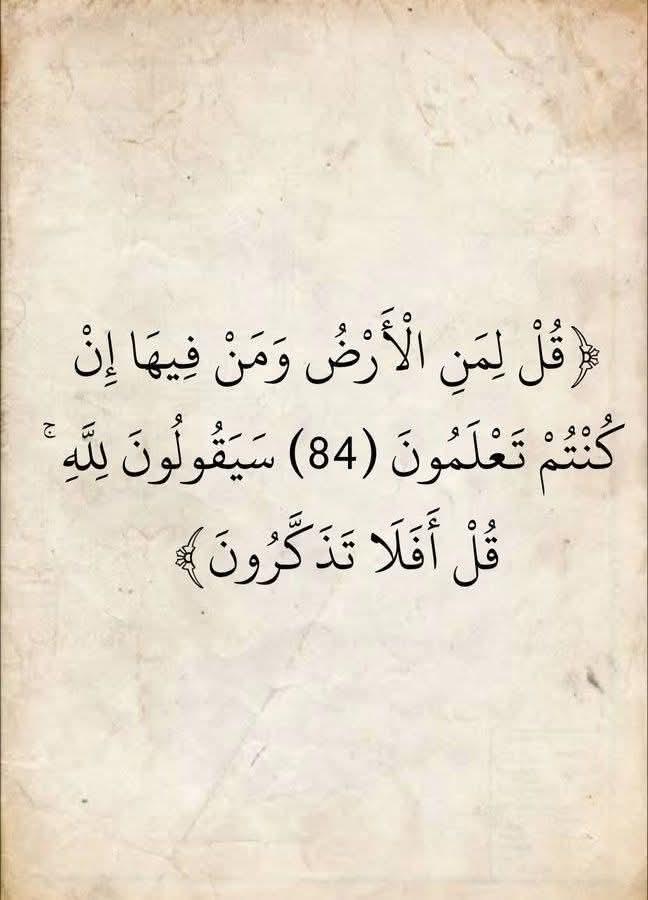 ﴿قُلْ لِمَنِ الْأَرْضُ وَمَنْ فِيهَا إِنْ
كُنْتُمْ تَعْلَمُونَ (84) سَيَقُولُونَ لِلَّهِ ۚ
قُلْ أَفَلَا تَذَكَّرُونَ﴾